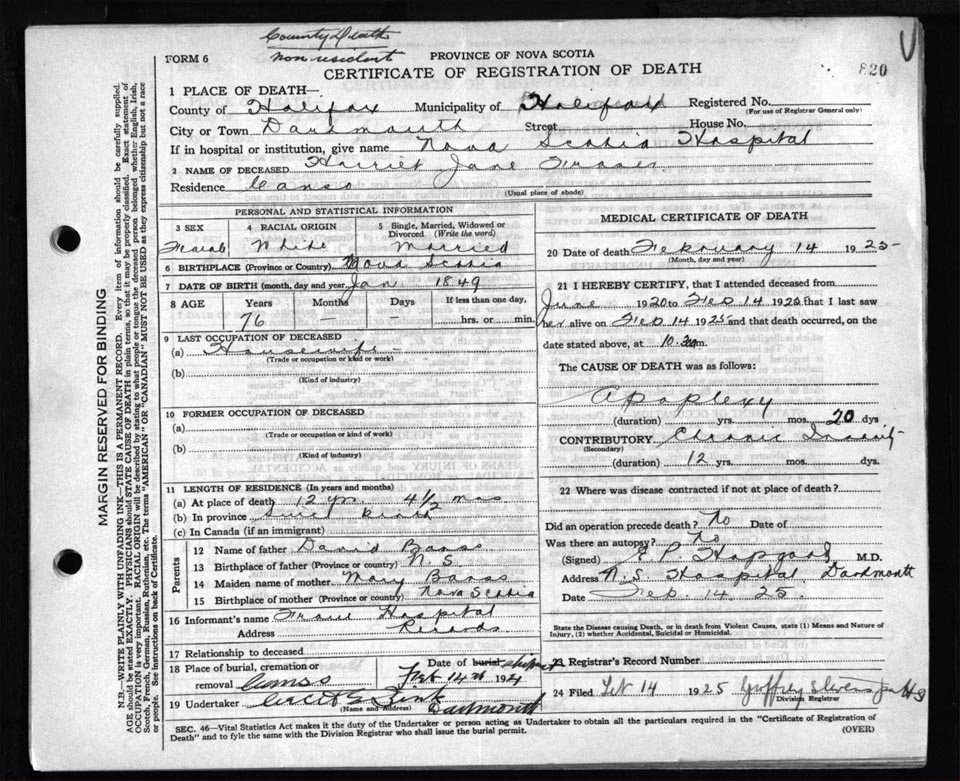 County Death
non resident
FORM 6
PROVINCE OF NOVA SCOTIA
CERTIFICATE OF REGISTRATION OF DEATH
820
1 PLACE OF DEATH—
County of Halifax Municipality of Halifax Registered No.
(For use of Registrar General only)
City or Town Dartmouth Street House No.
If in hospital or institution, give name Nova Scotia Hospital
2 NAME OF DECEASED Harriet Jane Fraser
Residence Canso
(Usual place of abode)
PERSONAL AND STATISTICAL INFORMATION
3 SEX 4 RACIAL ORIGIN 5 Single, Married, Widowed or Divorced (Write the word)
Female White Married
6 BIRTHPLACE (Province or Country) Nova Scotia
7 DATE OF BIRTH (month, day and year) Jan 1849
8 AGE Years Months Days If less than one day,
76 — — hrs. or min.
9 LAST OCCUPATION OF DECEASED
(a) Housewife
(Trade or occupation or kind or work)
(b)
(Kind of industry)
10 FORMER OCCUPATION OF DECEASED
(a)
(Trade or occupation or kind of work)
(b)
(Kind of industry)
11 LENGTH OF RESIDENCE (In years and months)
(a) At place of death 12 yrs 4½ mos
(b) In province Since birth
(c) In Canada (if an immigrant)
Parents
12 Name of father David
13 Birthplace of father (Province or country) N.S.
14 Maiden name of mother Mary
15 Birthplace of mother (Province or country) Nova Scotia
16 Informant's name From Hospital
Address Records
17 Relationship to deceased
18 Place of burial, cremation or removal Canso
Date of burial shipment Feb 14th 192
19 Undertaker
(Name and Address) Dartmouth
MEDICAL CERTIFICATE OF DEATH
20 Date of death February 14 1925
(Month, day and year)
21 I HEREBY CERTIFY, that I attended deceased from
June 1920 to Feb 14 1925 that I last saw
her alive on Feb 14 1925 and that death occurred, on
date stated above, at 10.30 m.
The CAUSE OF DEATH was as follows:
Apoplexy
(duration) yrs. mos. 20 dys
CONTRIBUTORY Chronic Insanity
(Secondary)
(duration) 12 yrs. mos. dys.
22 Where was disease contracted if not at place of death?
Did an operation precede death? No Date of
Was there an autopsy? No
(Signed) E P Hopgood M.D.
Address N.S. Hospital Dartmouth
Date Feb. 14. 25.
State the Disease causing Death, or in death from Violent Causes, state (1) Means and Nature of
Injury, (2) whether Accidental, Suicidal or Homicidal.
23 Registrar's Record Number
24 Filed Feb 14 1925
Division Registrar
SEC. 46—Vital Statistics Act makes it the duty of the Undertaker or person acting as Undertaker to obtain all the particulars required in the "Certificate of Registration of
Death" and to fyle the same with the Division Registrar who shall issue the burial permit.
(OVER)
MARGIN RESERVED FOR BINDING
N.B.—WRITE PLAINLY WITH UNFADING INK—THIS IS A PERMANENT RECORD. Every item of information should be carefully supplied.
AGE should be stated EXACTLY. PHYSICIANS should STATE CAUSE OF DEATH in plain terms, so that it may be properly classified. Exact statement of
OCCUPATION is very important. RACIAL ORIGIN will be described by stating to what people or tongue the deceased person belonged whether English, Irish,
Scotch, French, German, Russian, Ruthenian, etc. The terms "AMERICAN" OR "CANADIAN" MUST NOT BE USED as they express citizenship but not a race
or people. See instructions on back of Certificate.